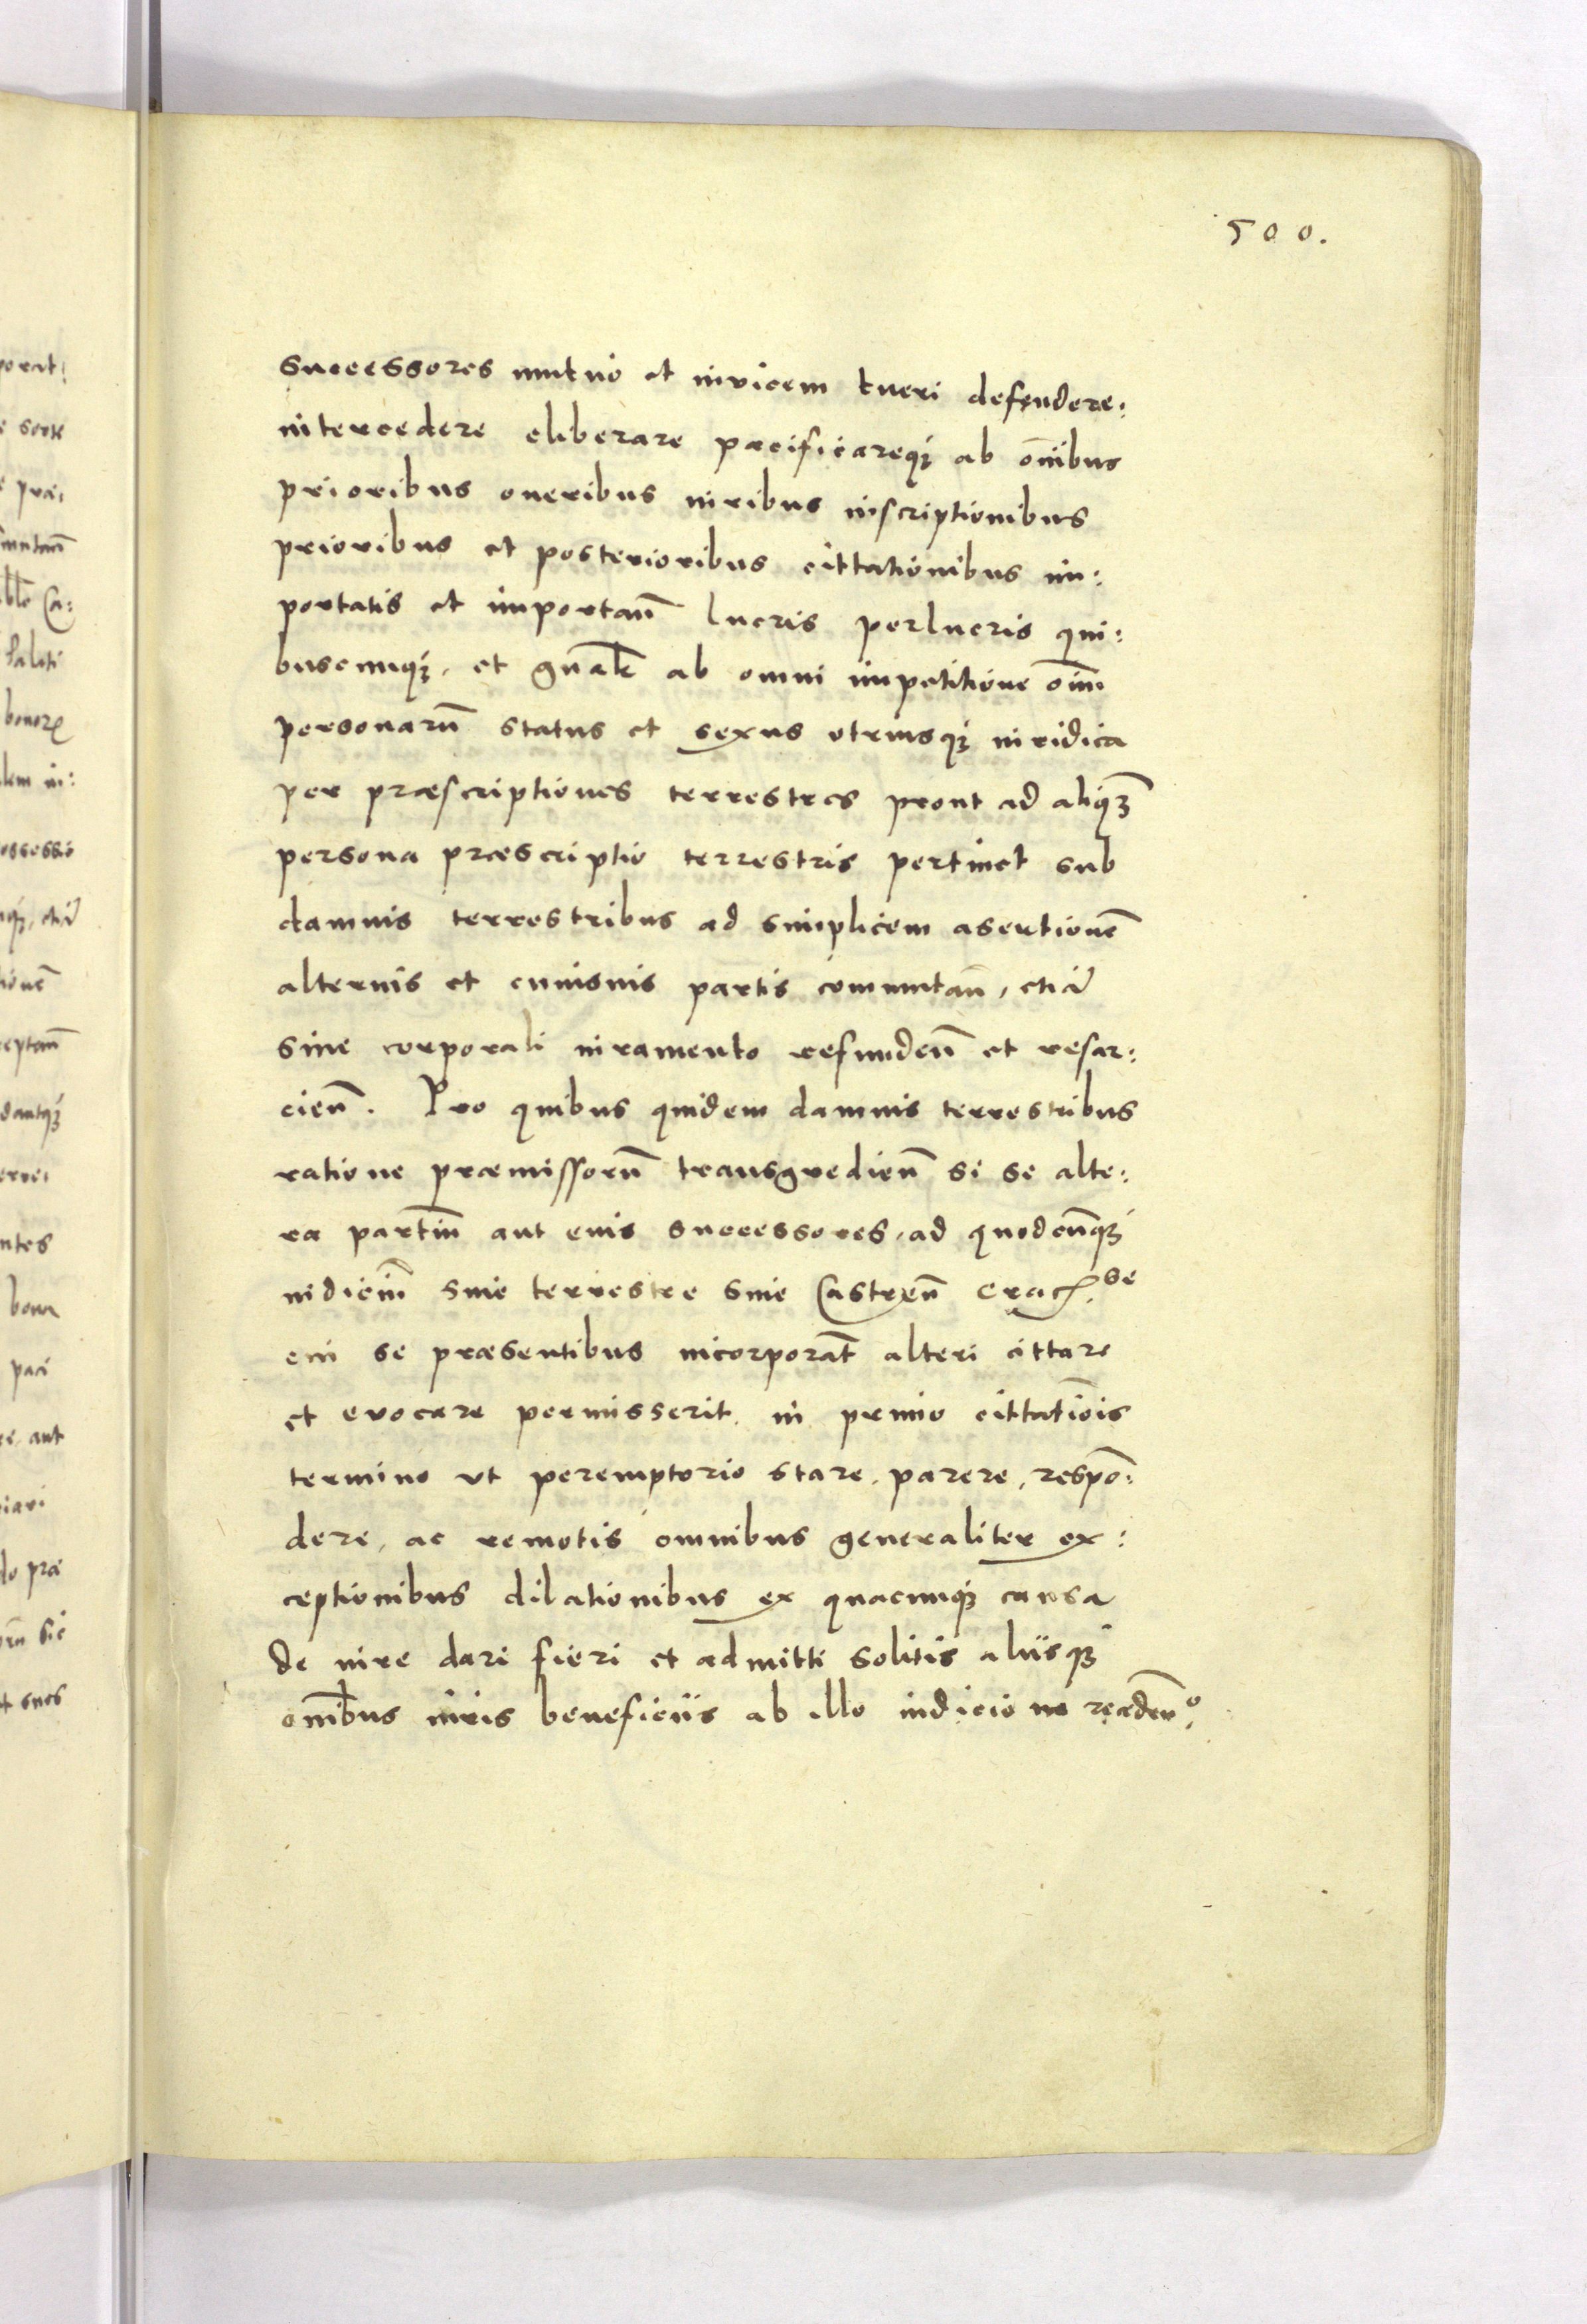 500.
successores mutuo et invicem tueri defendere:
intercedere eliberare pacificareq₃ ab ōnibus
prioribus oneribus iuribus inscriptionibus
prioribus et posterioribus cittationibus im:
portatis et importan̄ lucris perlucris qui:
buscunq₃. et gn̄alr ab omni impetitione oīm
personarū status et sexus utriusq₃ iuridica
per præscriptiones terrestres prout ad aliq̄₃
persona præscriptio terrestris pertinet sub
damnis terrestribus ad simplicem asertionē
alterius et cuiusuis partis commutan̄, etiā
sine corporali iuramento refunden̄ et resar:
cien̄. Pro quibus quidem damnis terrestribus
ratione præmissorū transgredien̄ si se alte:
ra partiū aut eius successores, ad quodcūq₃
iudiciū siue terrestre siue Castren̄ Crac.se
eni se præsentibus incorporāt alteri cittare
et evocare permisserit in primo cittatiōis
termino ut peremptorio stare, parere, respō:
dere, ac remotis omnibus generaliter ex:
ceptionibus dilationibus ex quacunq₃ causa
de iure dari fieri et admitti solitis aliisq₃
om̄ibus iuris beneficiis ab illo iudicio no recedendo